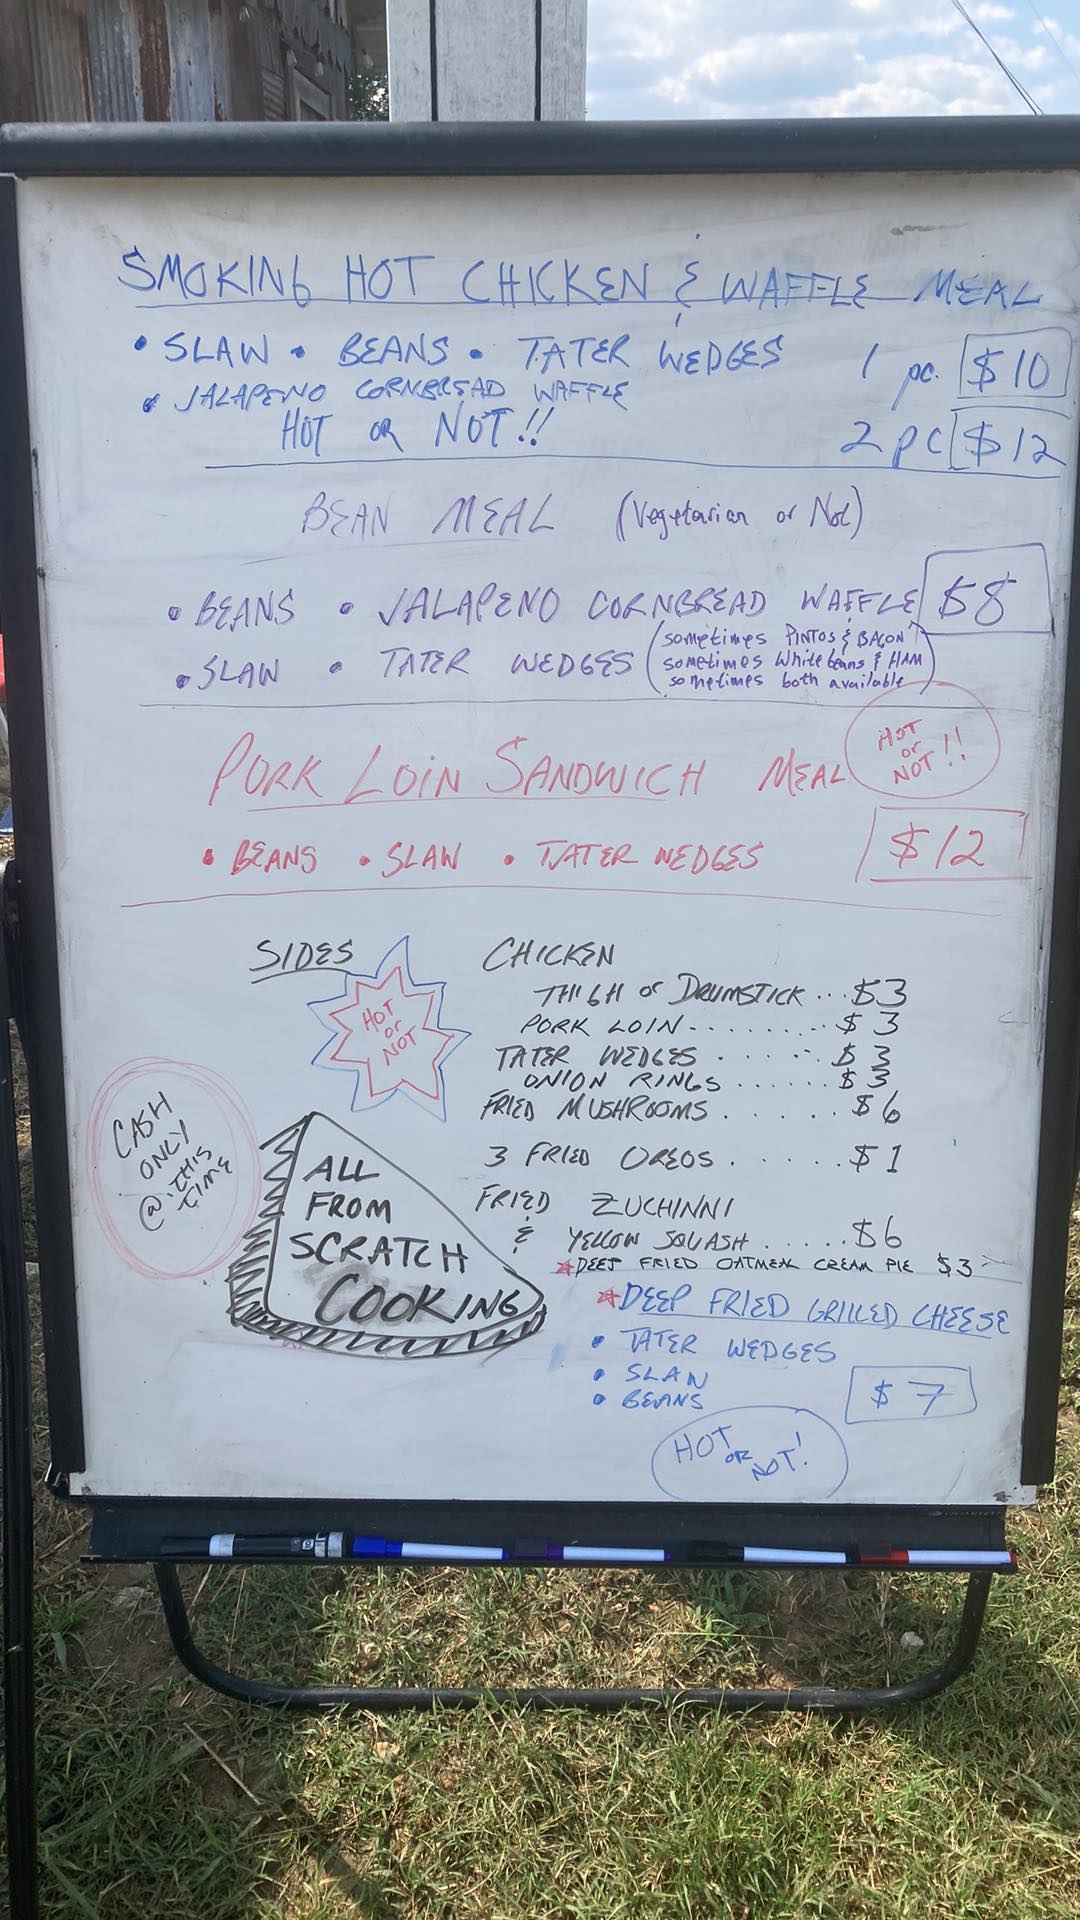 SMOKING HOT CHICKEN & WAFFLE MEAL
• SLAW • BEANS • TATER WEDGES 1 pc. $10
• JALAPENO CORNBREAD WAFFLE
HOT OR NOT!! 2 pc $12
BEAN MEAL (Vegetarian or Not)
• BEANS • JALAPENO CORNBREAD WAFFLE $8
• SLAW • TATER WEDGES (sometimes PINTOS & BACON
sometimes White beans & HAM
sometimes both available)
HOT
or
NOT!!
PORK LOIN SANDWICH MEAL
• BEANS • SLAW • TATER WEDGES $12
SIDES
HOT
or
NOT
CHICKEN
THIGH or DRUMSTICK ... $3
PORK LOIN......... $3
TATER WEDGES ...... $3
ONION RINGS ....... $3
FRIED MUSHROOMS ...... $6
3 FRIED OREOS ...... $1
FRIED ZUCHINNI
& YELLOW SQUASH ...... $6
DEEP FRIED OATMEAL CREAM PIE $3
CASH
ONLY
@ THIS
TIME
ALL
FROM
SCRATCH
COOKING
DEEP FRIED GRILLED CHEESE
• TATER WEDGES
• SLAW
• BEANS $7
HOT OR NOT!